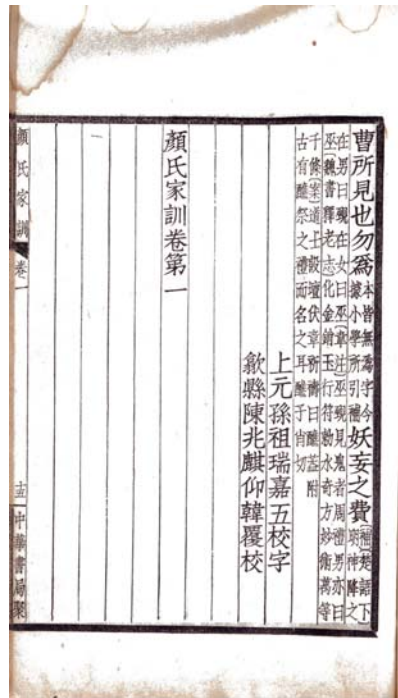 曹所見也勿爲本皆無爲字今據小學所引補妖妄之費(補)楚語下明神降之
在男曰覡在女曰巫(韋注)巫覡見鬼者周禮男亦曰
巫(魏書釋老志)化金銷玉行符勑水奇方妙術萬等
千條(案)道士設壇伏章祈禱曰醮蓋附
古有醮祭之禮而名之耳醮子肖切
上元孫祖瑞嘉五校字
歙縣陳兆麒仰韓覆校
顏氏家訓卷第一
顏氏家訓 卷一 十五 中華書局聚